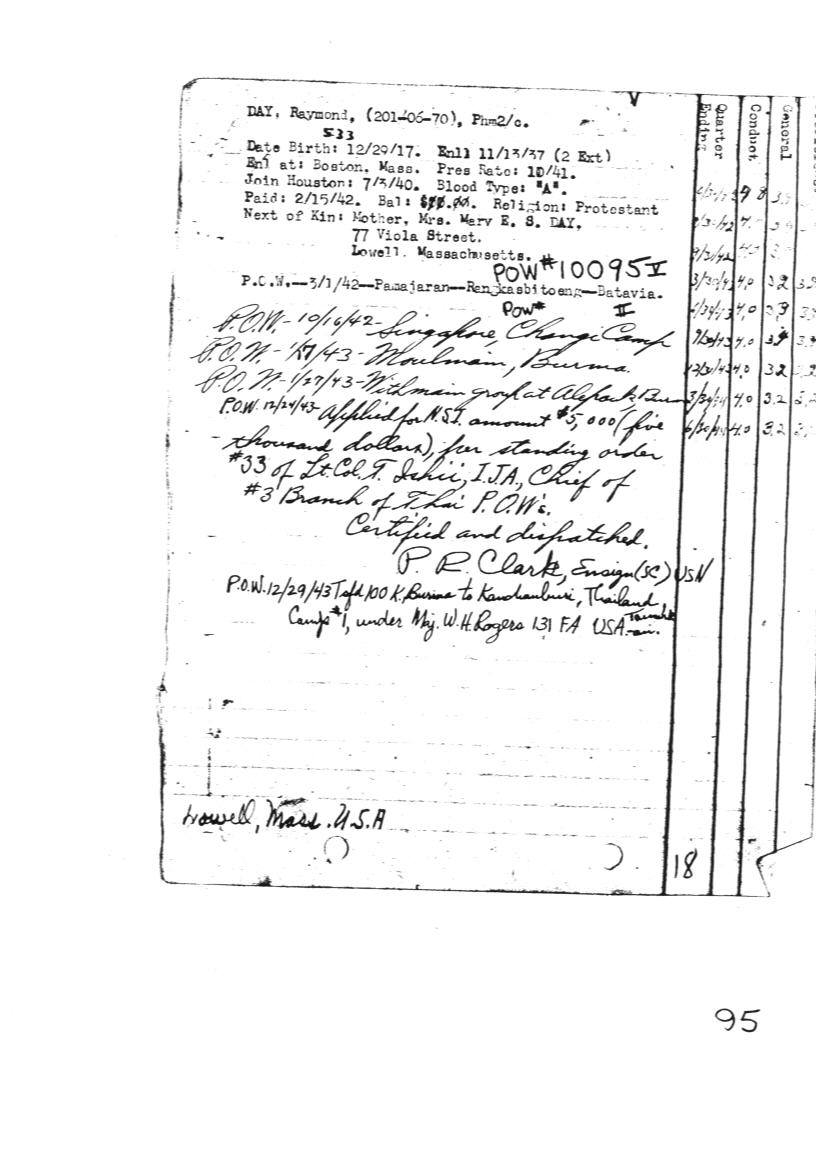 DAY, Raymond, (201-06-70), Phm2/c.
533
Date Birth: 12/29/17. Enll 11/13/37 (2 Ext)
Enl at: Boston, Mass. Pres Rate: 10/41.
Join Houston: 7/3/40. Blood Type: "A".
Paid: 2/15/42. Bal: Religion: Protestant
Next of Kin: Mother, Mrs. Mary E. S. DAY,
77 Viola Street.
Lowell. Massachusetts.
POW #10095 V
P.O.W.--3/1/42--Pamajaran--Rangkasbitoeng--Batavia.
POW# II
P.O.W. - 10/16/42 - Singapore, Changi Camp
P.O.W. - 1/ /43 - Moulmain, Burma.
P.O.W. - 1/27/43 - With main group at Alepauk, Burma
P.O.W. 12/24/43 - Applied for N.S.I. amount $5,000 (five
thousand dollars), per standing order
#33 of Lt. Col. T. Ishii, I.J.A., Chief of
#3 Branch of Thai P.O.W's.
Certified and dispatched.
P. R. Clark, Ensign (SC) USN
P.O.W. 12/29/43 Tsfd 100 K, Burma to Kanchanburi, Thailand
Camp #1, under Maj. W.H. Rogers 131 FA USA.
Lowell, Mass. U.S.A
18
Quarter Ending
Conduct
General
3/30/43 4.0 3.2
4.0
9/30/43 4.0
12/31/43 4.0 3.2
4.0 3.2
4.0 3.2
95